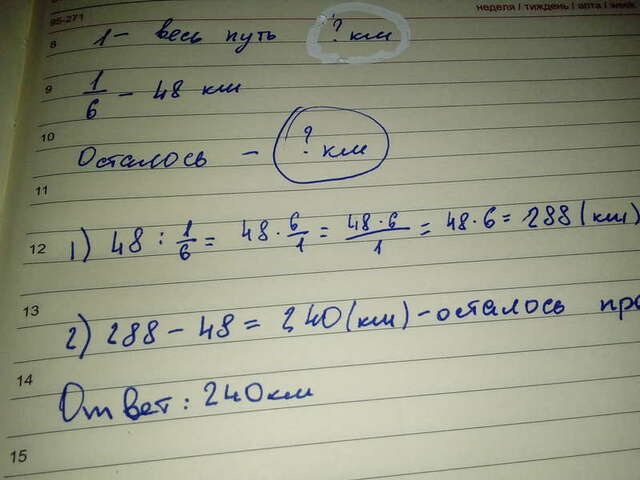 неделя / тиждень / апта / week
95-271
8 1 - весь путь ? км
9 1/6 - 48 км
10
Осталось - ? км
11
12 1) 48 : 1/6 = 48 · 6/1 = 48·6/1 = 48·6 = 288 (км)
13
2) 288 - 48 = 240 (км) - осталось
14
Ответ: 240 км
15